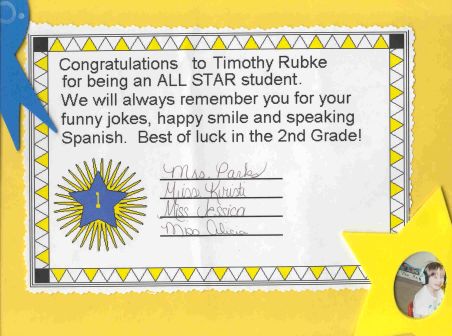 Congratulations to Timothy Rubke
for being an ALL STAR student.
We will always remember you for your
funny jokes, happy smile and speaking
Spanish. Best of luck in the 2nd Grade!
1
Mrs. Park
Miss Kristi
Miss Jessica
Miss Alicia